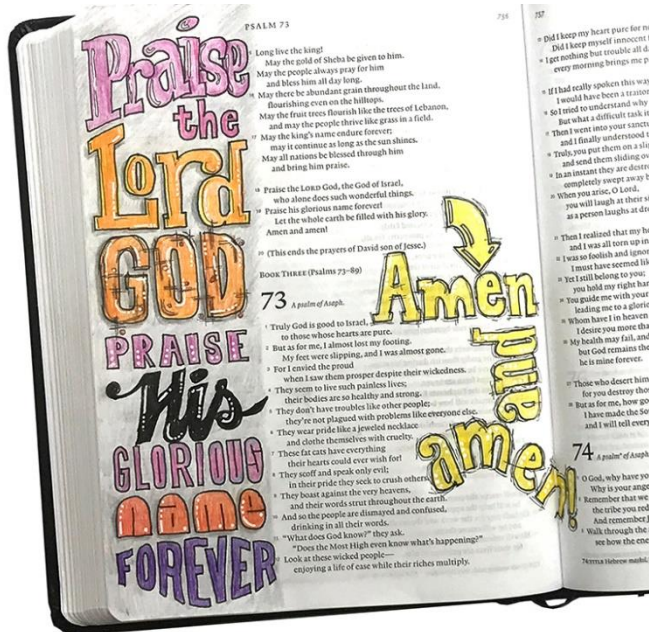 PSALM 73
736
737
Praise
the
Lord
GOD
PRAISE
His
GLORIOUS
name
FOREVER
Long live the king!
May the gold of Sheba be given to him.
May the people always pray for him
and bless him all day long.
16 May there be abundant grain throughout the land,
flourishing even on the hilltops.
May the fruit trees flourish like the trees of Lebanon,
and may the people thrive like grass in a field.
17 May the king's name endure forever;
may it continue as long as the sun shines.
May all nations be blessed through him
and bring him praise.
18 Praise the LORD God, the God of Israel,
who alone does such wonderful things.
19 Praise his glorious name forever!
Let the whole earth be filled with his glory.
Amen and amen!
20 (This ends the prayers of David son of Jesse.)
BOOK THREE (Psalms 73–89)
73 A psalm of Asaph.
1 Truly God is good to Israel,
to those whose hearts are pure.
2 But as for me, I almost lost my footing.
My feet were slipping, and I was almost gone.
3 For I envied the proud
when I saw them prosper despite their wickedness.
4 They seem to live such painless lives;
their bodies are so healthy and strong.
5 They don't have troubles like other people;
they're not plagued with problems like everyone else.
6 They wear pride like a jeweled necklace
and clothe themselves with cruelty.
7 These fat cats have everything
their hearts could ever wish for!
8 They scoff and speak only evil;
in their pride they seek to crush others.
9 They boast against the very heavens,
and their words strut throughout the earth.
10 And so the people are dismayed and confused,
drinking in all their words.
11 "What does God know?" they ask.
"Does the Most High even know what's happening?"
12 Look at these wicked people—
enjoying a life of ease while their riches multiply.
Amen
and
amen!
Did I keep my heart pure for
Did I keep myself innocent
I get nothing but trouble all
every morning brings me
If I had really spoken this way
I would have been a traitor
So I tried to understand why
But what a difficult task it
Then I went into your
and I finally understood
Truly, you put them on a
and send them sliding
In an instant they are
completely swept away
When you arise, O Lord,
you will laugh at their
as a person laughs at
Then I realized that my
and I was all torn up
I was so foolish and
I must have seemed
Yet I still belong to you;
you hold my right
You guide me with your
leading me to a
Whom have I in heaven
I desire you more
My health may fail, and
but God remains the
he is mine forever.
Those who desert him
for you destroy
But as for me, how
I have made the
and I will tell
74 A psalm of Asaph
O God, why have
Why is your
Remember that we
the tribe you
And remember
Walk through the
see how the
Hebrew